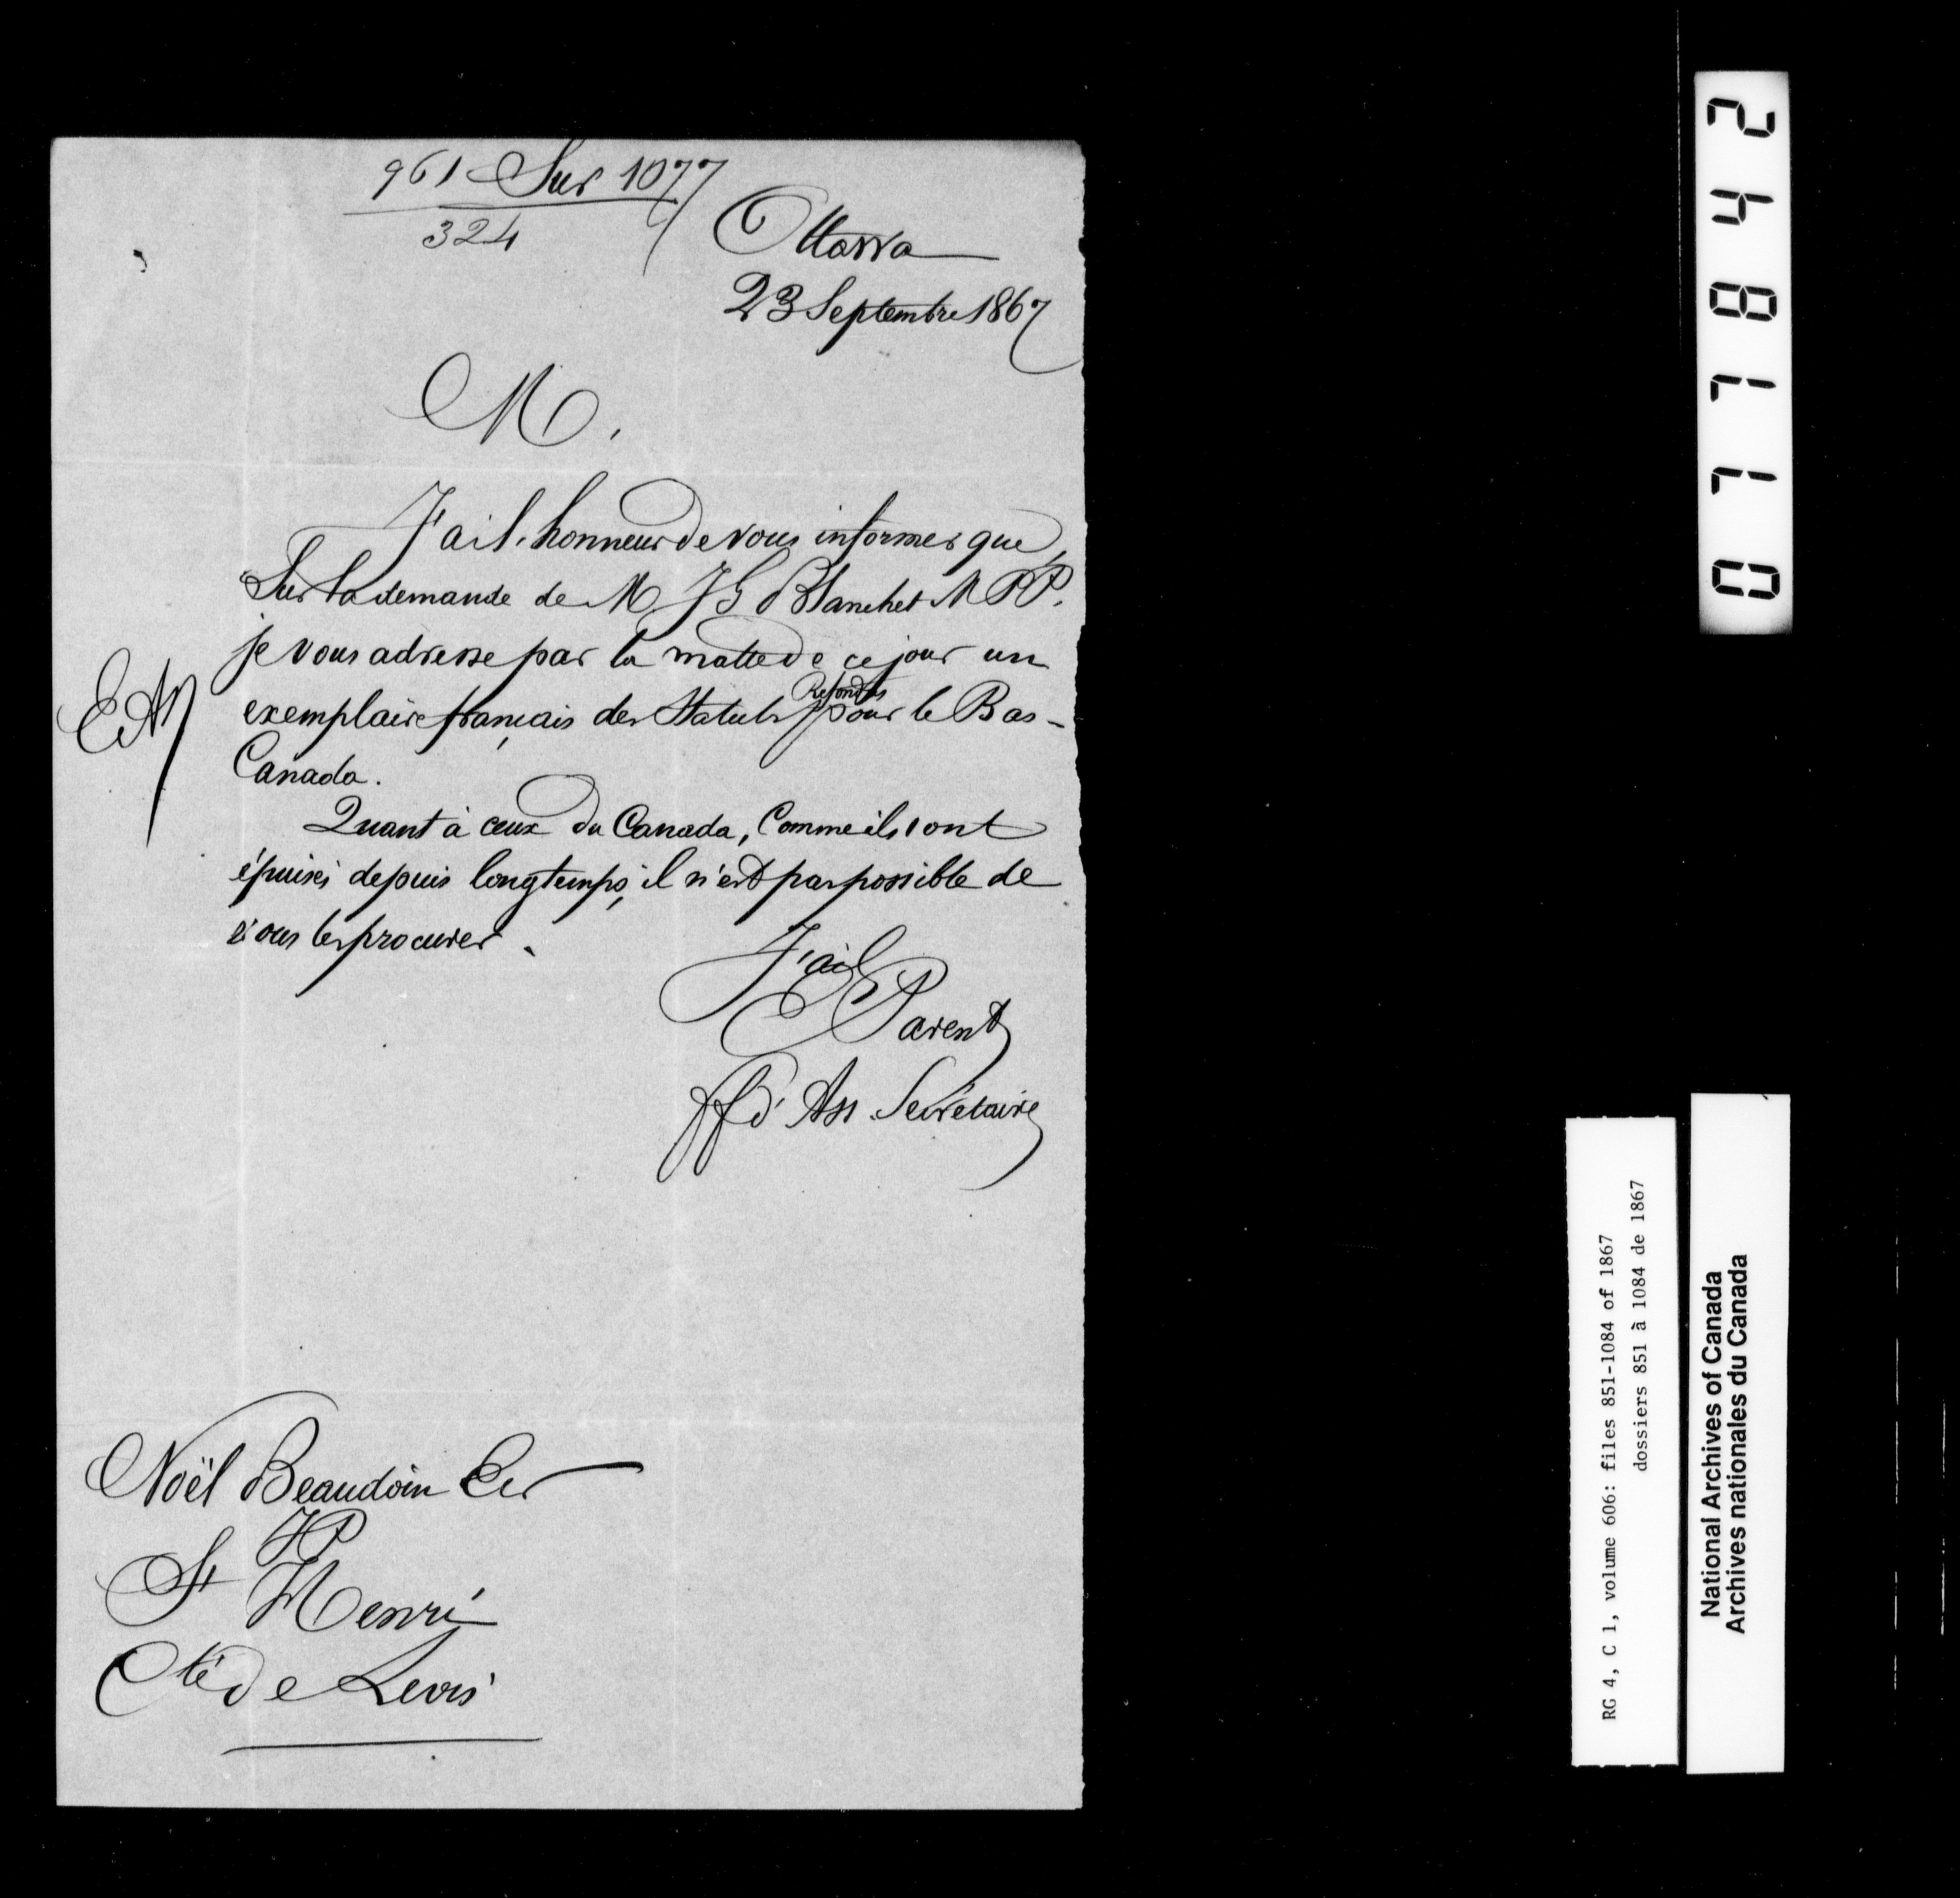 961 Sur 1077
324
Ottawa
23 Septembre 1867
M.
J'ai l'honneur de vous informer que,
sur la demande de M J G Blanchet M P P.
je vous adresse par la malle de ce jour un
exemplaire français des Statuts Refondus pour le Bas-
Canada.
Quant à ceux du Canada, comme ils sont
épuisés depuis longtemps, il n'est pas possible de
vous les procurer.
J'ai
E Parent
Ass. Secrétaire
Noël Beaudoin Ecr
JP
St Henri
Cté de Levis
077842
RG 4, C 1, volume 606: files 851-1084 of 1867
dossiers 851 à 1084 de 1867
National Archives of Canada
Archives nationales du Canada